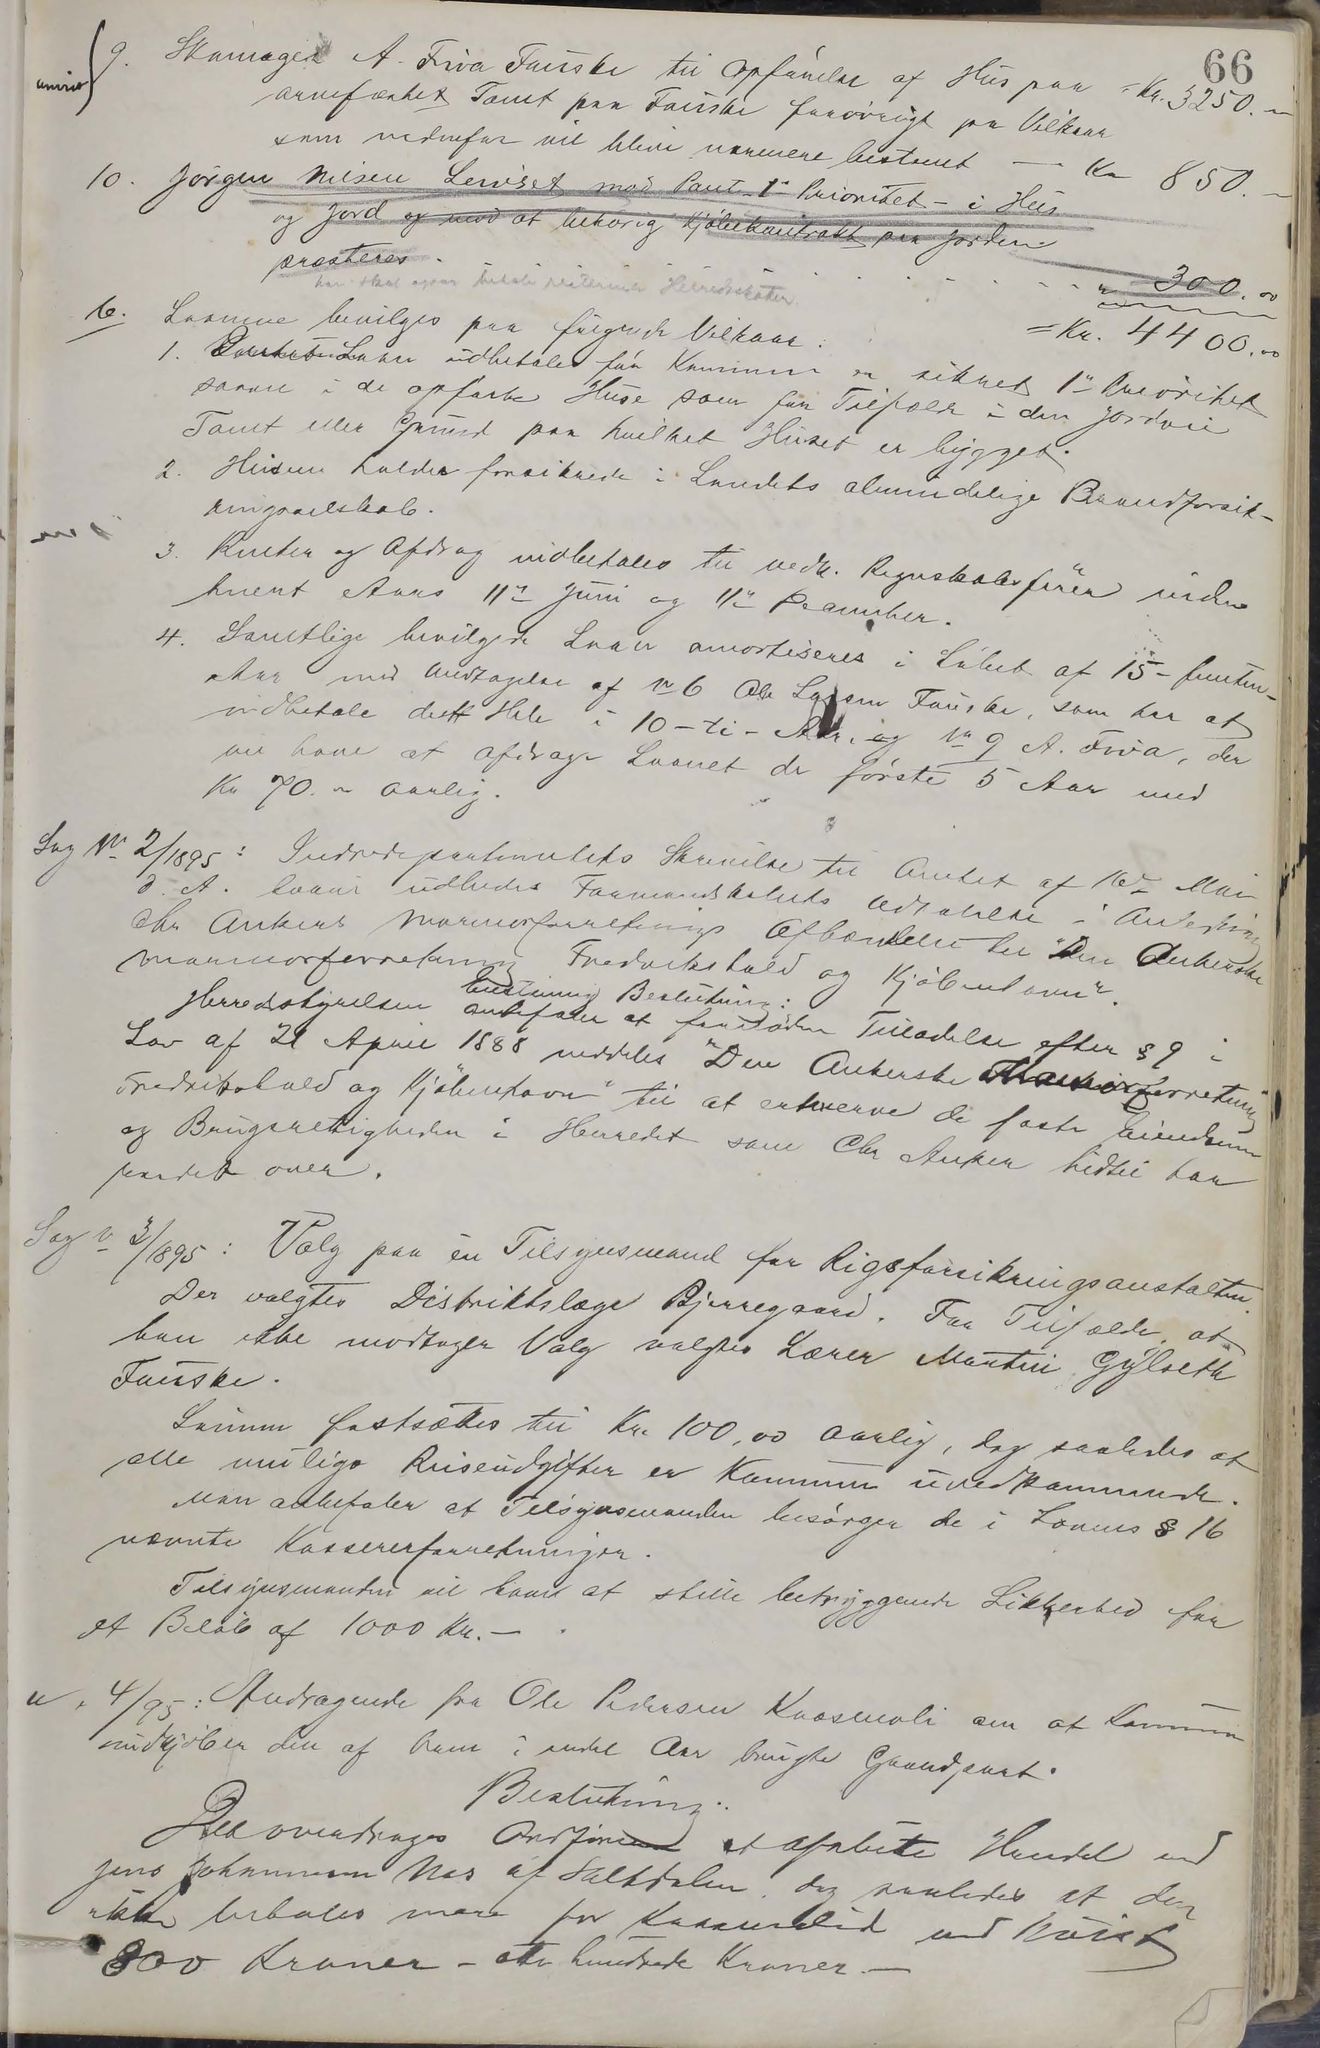 66
9. Skomager A. Friva Fauske til Opførelse af Hus paa = Kr. 3250.-
arvefæstet Tomt paa Fauske forøvrigt paa Vilkaar
som nedenfor vil blive nærmere bestemt — Kr 850.-
10. Jørgen Nilsen Leivset mod Pant - 1ste Prioritet - i Hus
og Jord og mod at behørig Kjøbekontrakt paa Jorden
præsteres. 300.00
han skal ogsaa betale resterende Herredsskatter
= Kr. 4400.00
b. Laanene bevilges paa følgende Vilkaar:
1. Laan udbetales før Kommunen er sikret 1ste Prioritet
saavel i de opførte Huse som for Tilfælde i den Jordvei
Tomt eller Grund paa hvilket Huset er bygget.
2. Husene holdes forsikrede i Landets almindelige Brandforsik-
ringsselskab.
3. Renter og Afdrag indbetales til vedk. Regnskabsfører inden
hvert Aars 11te Juni og 11te December.
4. Samtlige bevilgede Laan amortiseres i Løbet af 15 - femten -
Aar med Undtagelse af No 6 Ole Larsen Fauske, som har at
indbetale det Hele i 10 - ti - Aar, og No 9 A. Friva, der
vil have at afdrage Laanet de første 5 Aar med
Kr 70.- aarlig.
Sag No 2/1895: Indredepartementets Skrivelse til Amtet af 16de Mai
d. A. hvori udbedes Formandskabets Udtalelse i Anledning
Chr Ankers Marmorforretnings Afhændelse til "Den Ankerske
Marmorforretning Fredrikshald og Kjøbenhavn".
Beslutning:
Herredsstyrelsen anbefaler at fornøden Tilladelse efter § 9 i
Lov af 21 April 1888 meddeles "Den Ankerske Marmorforretning
Fredrikshald og Kjøbenhavn" til at erhverve de faste Eiendomme
og Brugsrettigheder i Herredet som Chr Anker hidtil har
raadet over.
Sag No 3/1895: Valg paa en Tilsynsmand for Rigsforsikringsanstalten.
Der valgtes Distriktslæge Bjerregaard. For Tilfælde, at
han ikke modtager Valg valgtes Lærer Martin Gylseth
Fauske.
Lønnen fastsættes til Kr. 100,00 aarlig, dog saaledes at
alle mulige Reiseudgifter er Kommunen uvedkommende.
Man anbefaler at Tilsynsmanden besørger de i Lovens § 16
nævnte Kassererforretninger.
Tilsynsmanden vil have at stille betryggende Sikkerhed for
et Beløb af 1000 Kr.-
" " 4/95: Andragende fra Ole Pedersen Kvasmoli om at Kommunen
indkjøber den af ham i endel Aar brugte Grundpart.
Beslutning:
Det overdrages Ordføreren at afslutte Handel med
Jens Johannesen Nes af Saltdalen, dog saaledes at der
ikke betales mere for end høist
800 Kroner - otte hundrede Kroner.-